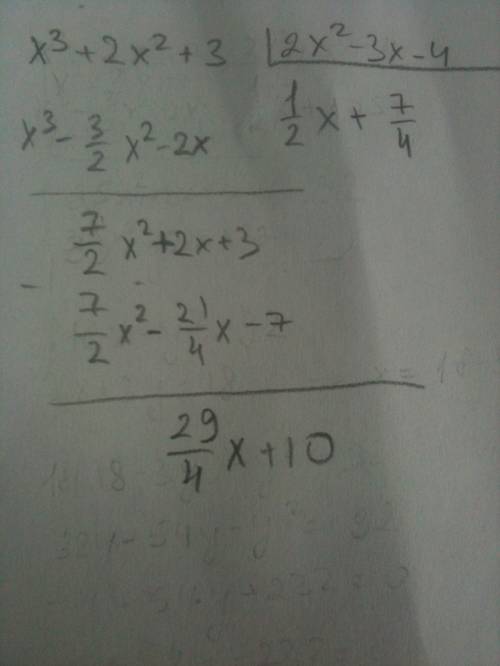 x³ + 2x² + 3 | 2x² - 3x - 4
x³ - 3/2 x² - 2x   1/2 x + 7/4
7/2 x² + 2x + 3
-
7/2 x² - 21/4 x - 7
29/4 x + 10